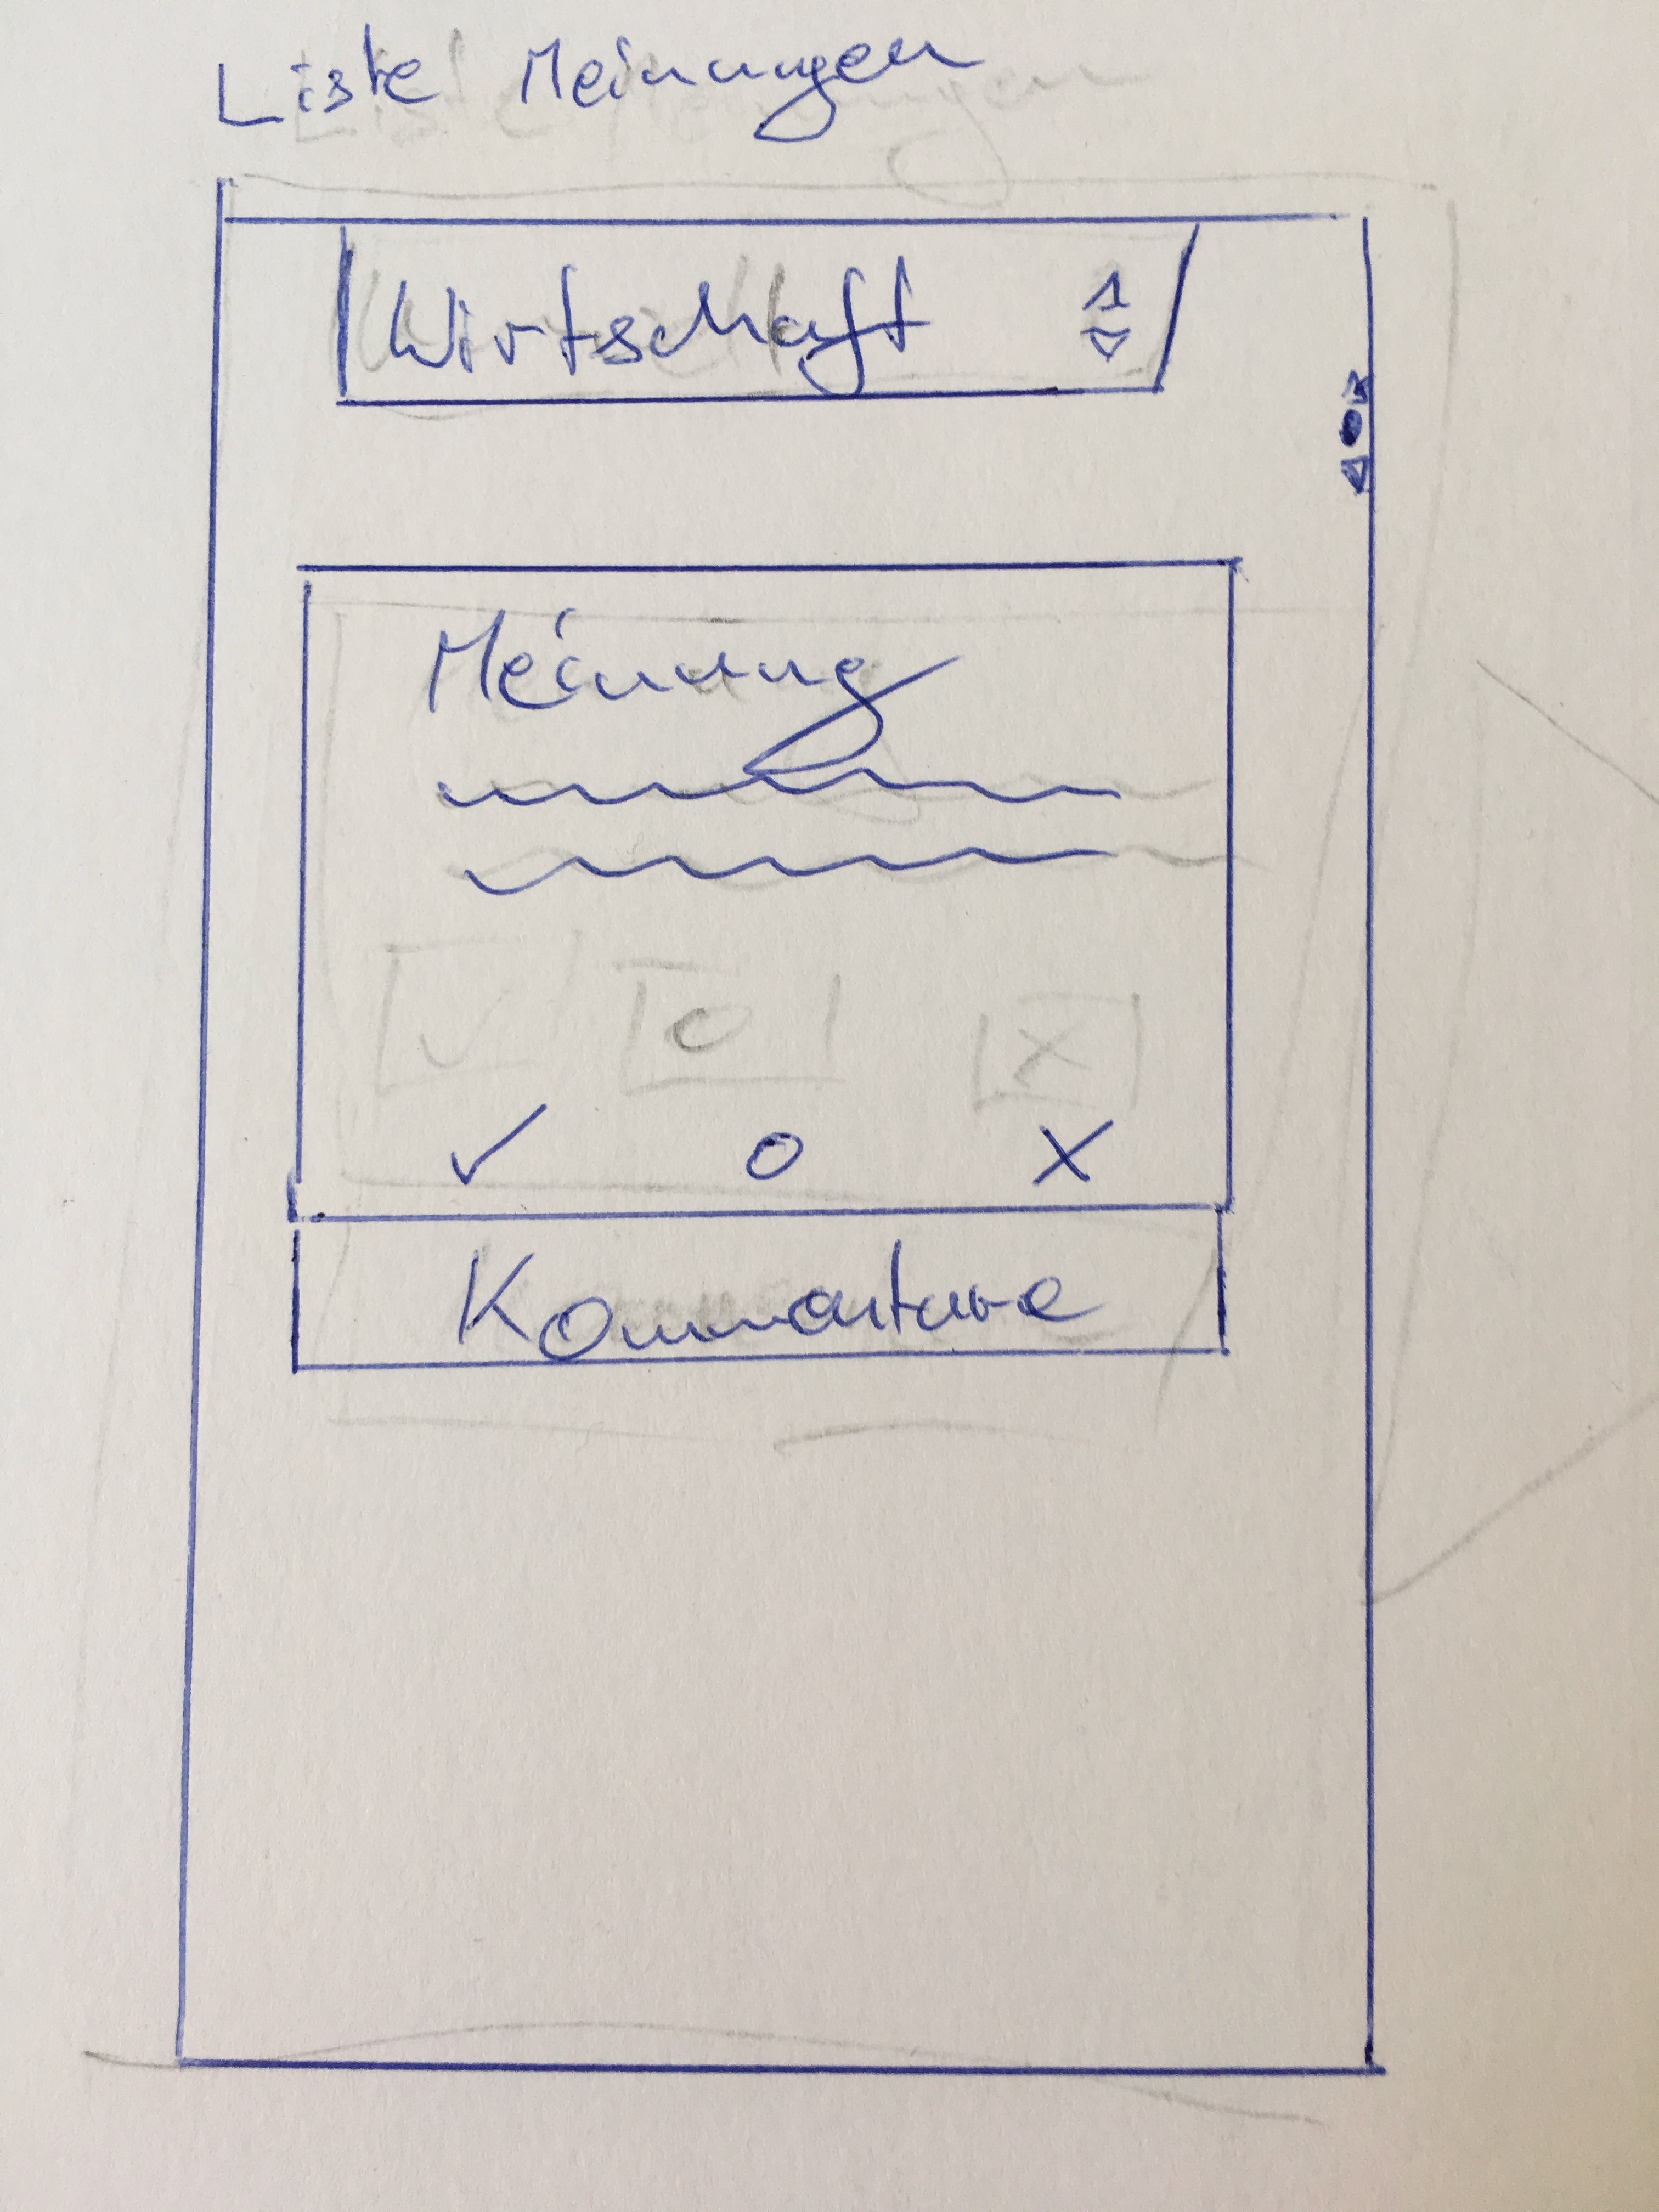 Liste Meinungen
Wirtschaft
Meinung
✓ O X
✓ O X
Kommentare